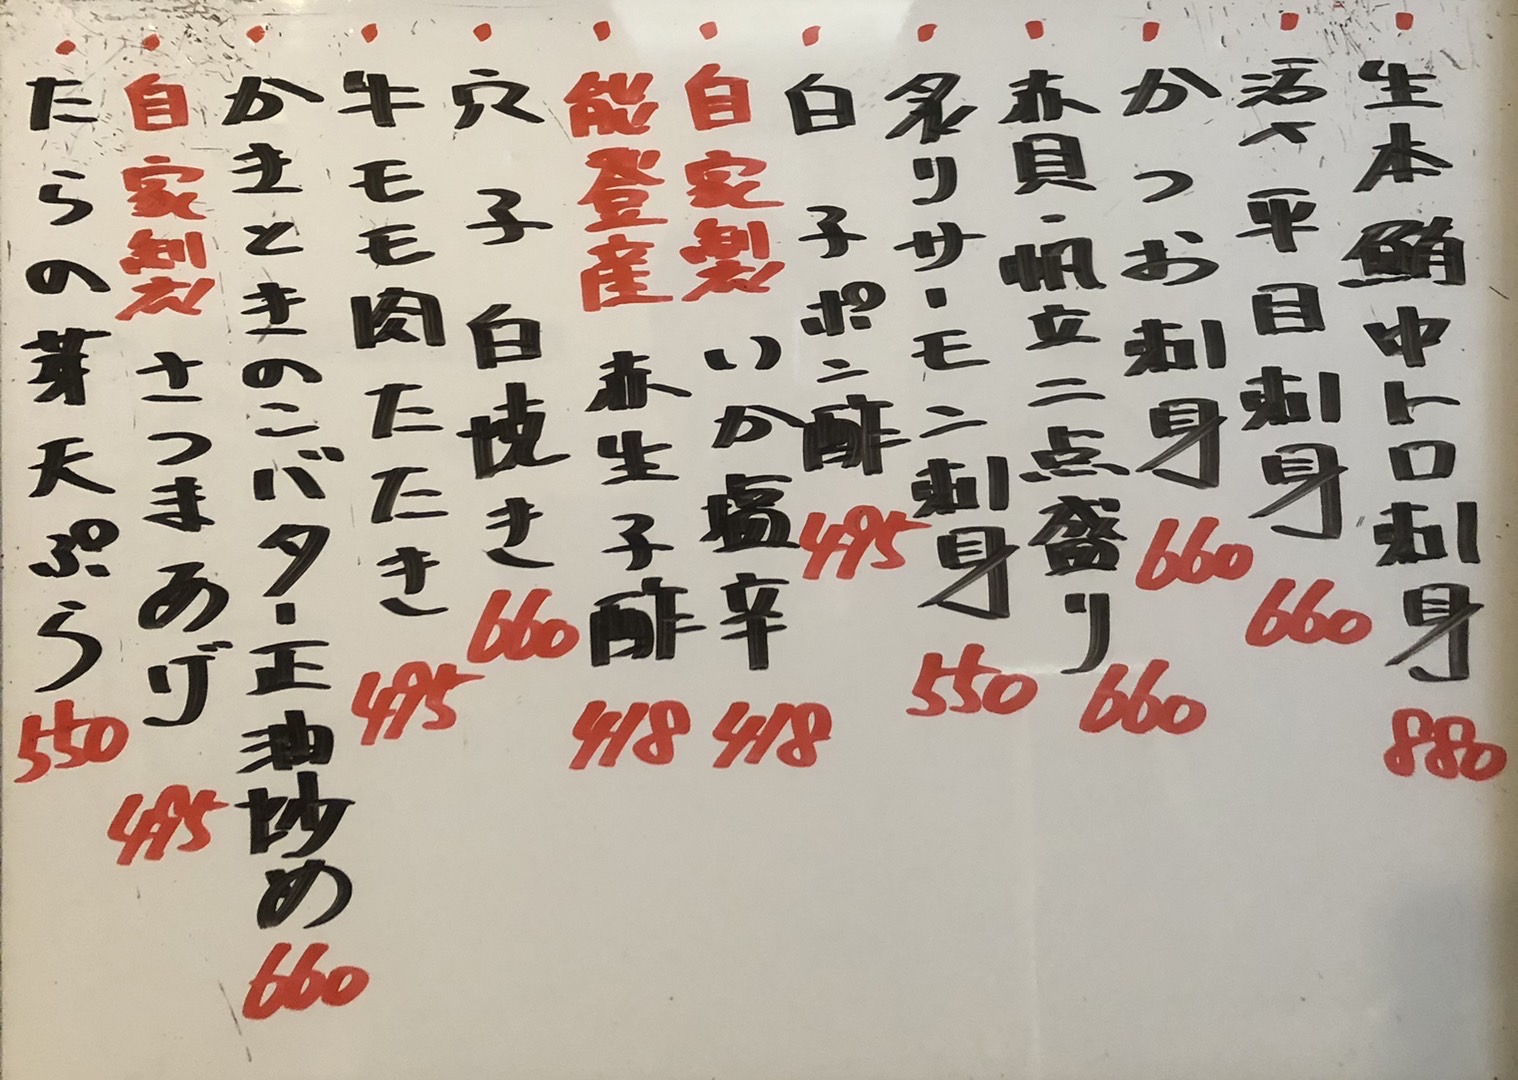 生本鮪中トロ刺身 880
活〆平目刺身 660
かつお刺身 660
赤貝・帆立二点盛り 660
炙りサーモン刺身 550
白子ポン酢 495
自家製 いか塩辛 418
能登産 赤生子酢 418
穴子白焼き 660
牛モモ肉たたき 495
かきときのこバター正油炒め 660
自家製 さつまあげ 495
たらの芽天ぷら 550